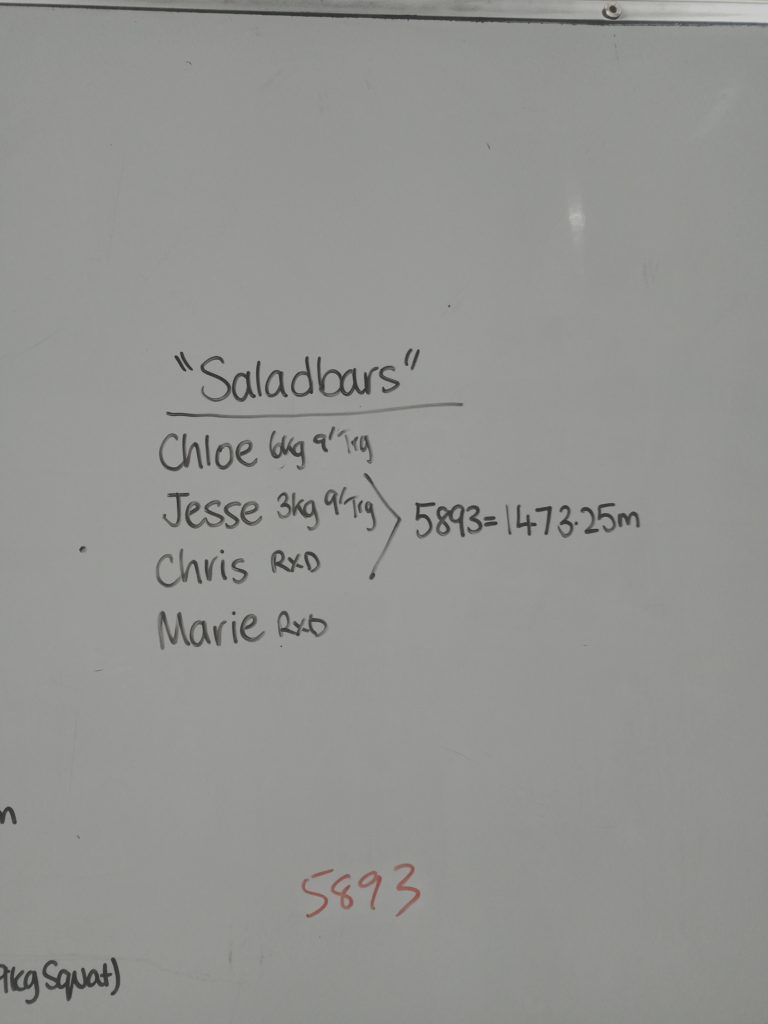 "Saladbars"
Chloe 6kg 9'Trg
Jesse 3kg 9'Trg
5893=1473.25m
Chris RxD
Marie RxD
5893
9kg Squat)